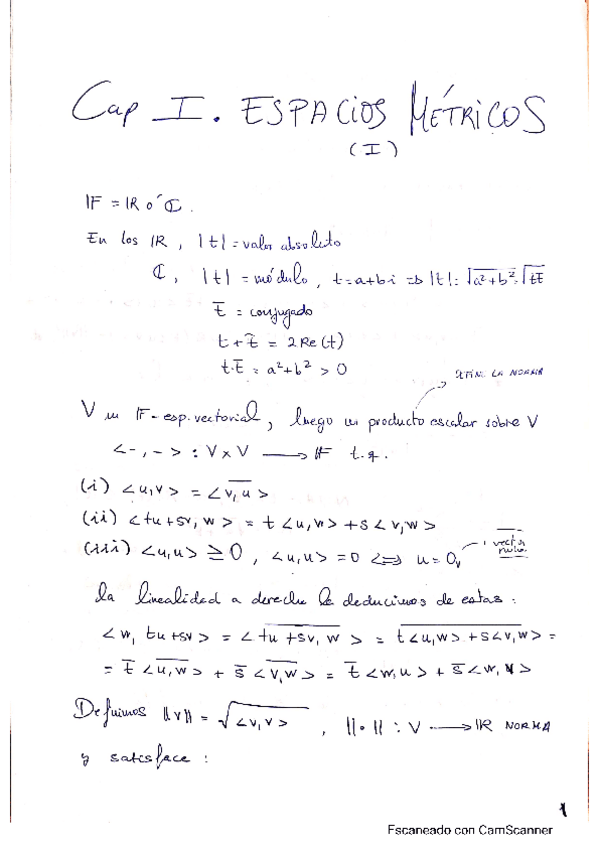 Cap I. ESPACIOS MÉTRICOS
(I)
𝔽 = ℝ o ℂ.
En los ℝ, |t| = valor absoluto
ℂ, |t| = módulo, t=a+bi ⇒ |t| = √(a²+b²) = √(t t̄)
t̄ = conjugado
t + t̄ = 2Re(t)
t·t̄ = a²+b² > 0
LA NORMA
V un 𝔽-esp. vectorial, luego un producto escalar sobre V
<-,-> : V×V ⟶ 𝔽 t.q.
(i) <u,v> = <\overline{v,u}>
(ii) <tu+sv, w> = t<u,w> + s<v,w>
(iii) <u,u> ≥ 0, <u,u> = 0 ⟺ u = 0ᵥ
vector nulo
la linealidad a derecha la deducimos de estas:
<w, tu+sv> = <\overline{tu+sv, w}> = \overline{t<u,w> + s<v,w>} =
= t̄ <\overline{u,w}> + s̄ <\overline{v,w}> = t̄ <w,u> + s̄ <w,v>
Definimos ||v|| = √<v,v>, ||•|| : V ⟶ ℝ NORMA
y satisface:
1
Escaneado con CamScanner